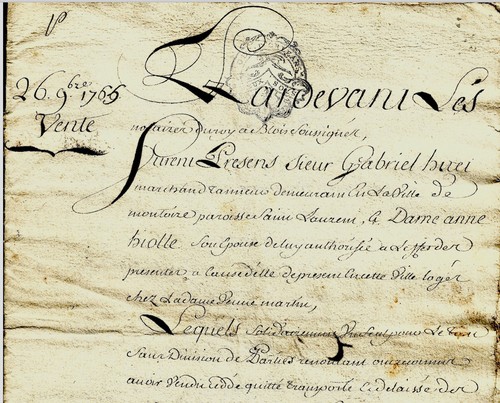 26 9bre 1765
Vente
Pardevant Les
notaires du roy a Blois Soussignés,
furent Presens Sieur Gabriel hugi
marchand tanneur demeurant En La Ville de
montoire paroisse Saint Laurent, & Dame anne
hiolle Son Epouse de luy authorisée a L'effet des
presentes, a Cause d'elle de present En cette Ville logés
chez La dame Veuve martin,
Lesquels Solidairement Un Seul pour Le tout
Sans Division de Parties renonçant
avoir Vendu cedé quitté transporté Et delaissé des